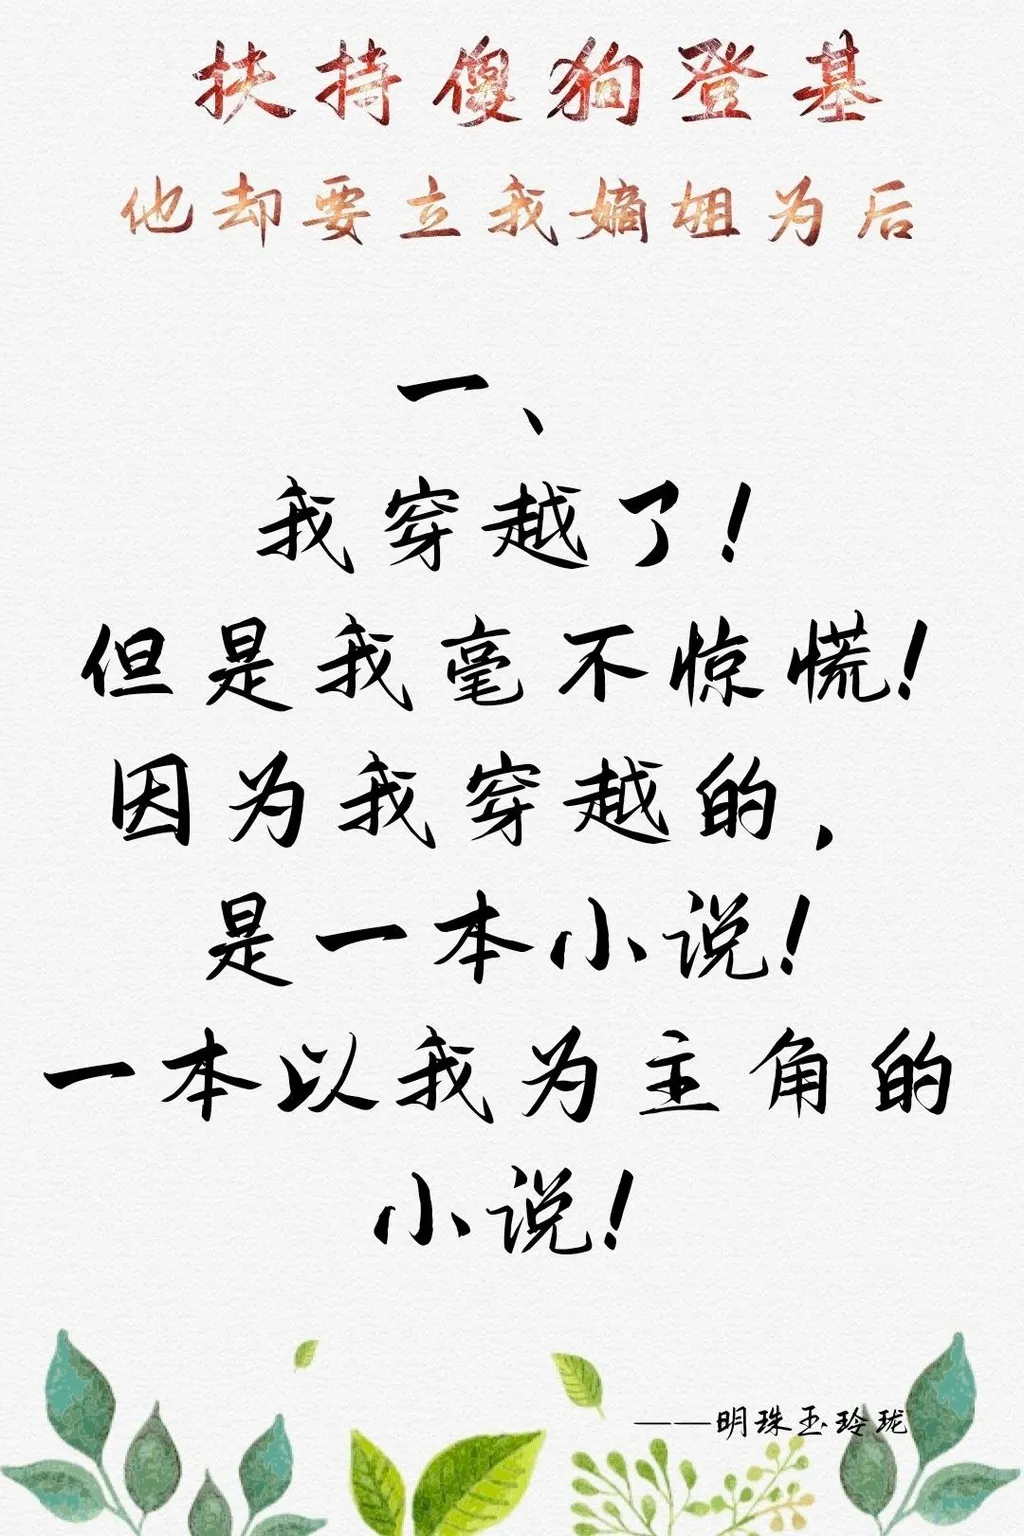 扶持傻狗登基
他却要立我嫡姐为后
一、
我穿越了！
但是我毫不惊慌！
因为我穿越的，
是一本小说！
一本以我为主角的
小说！
——明珠玉玲珑